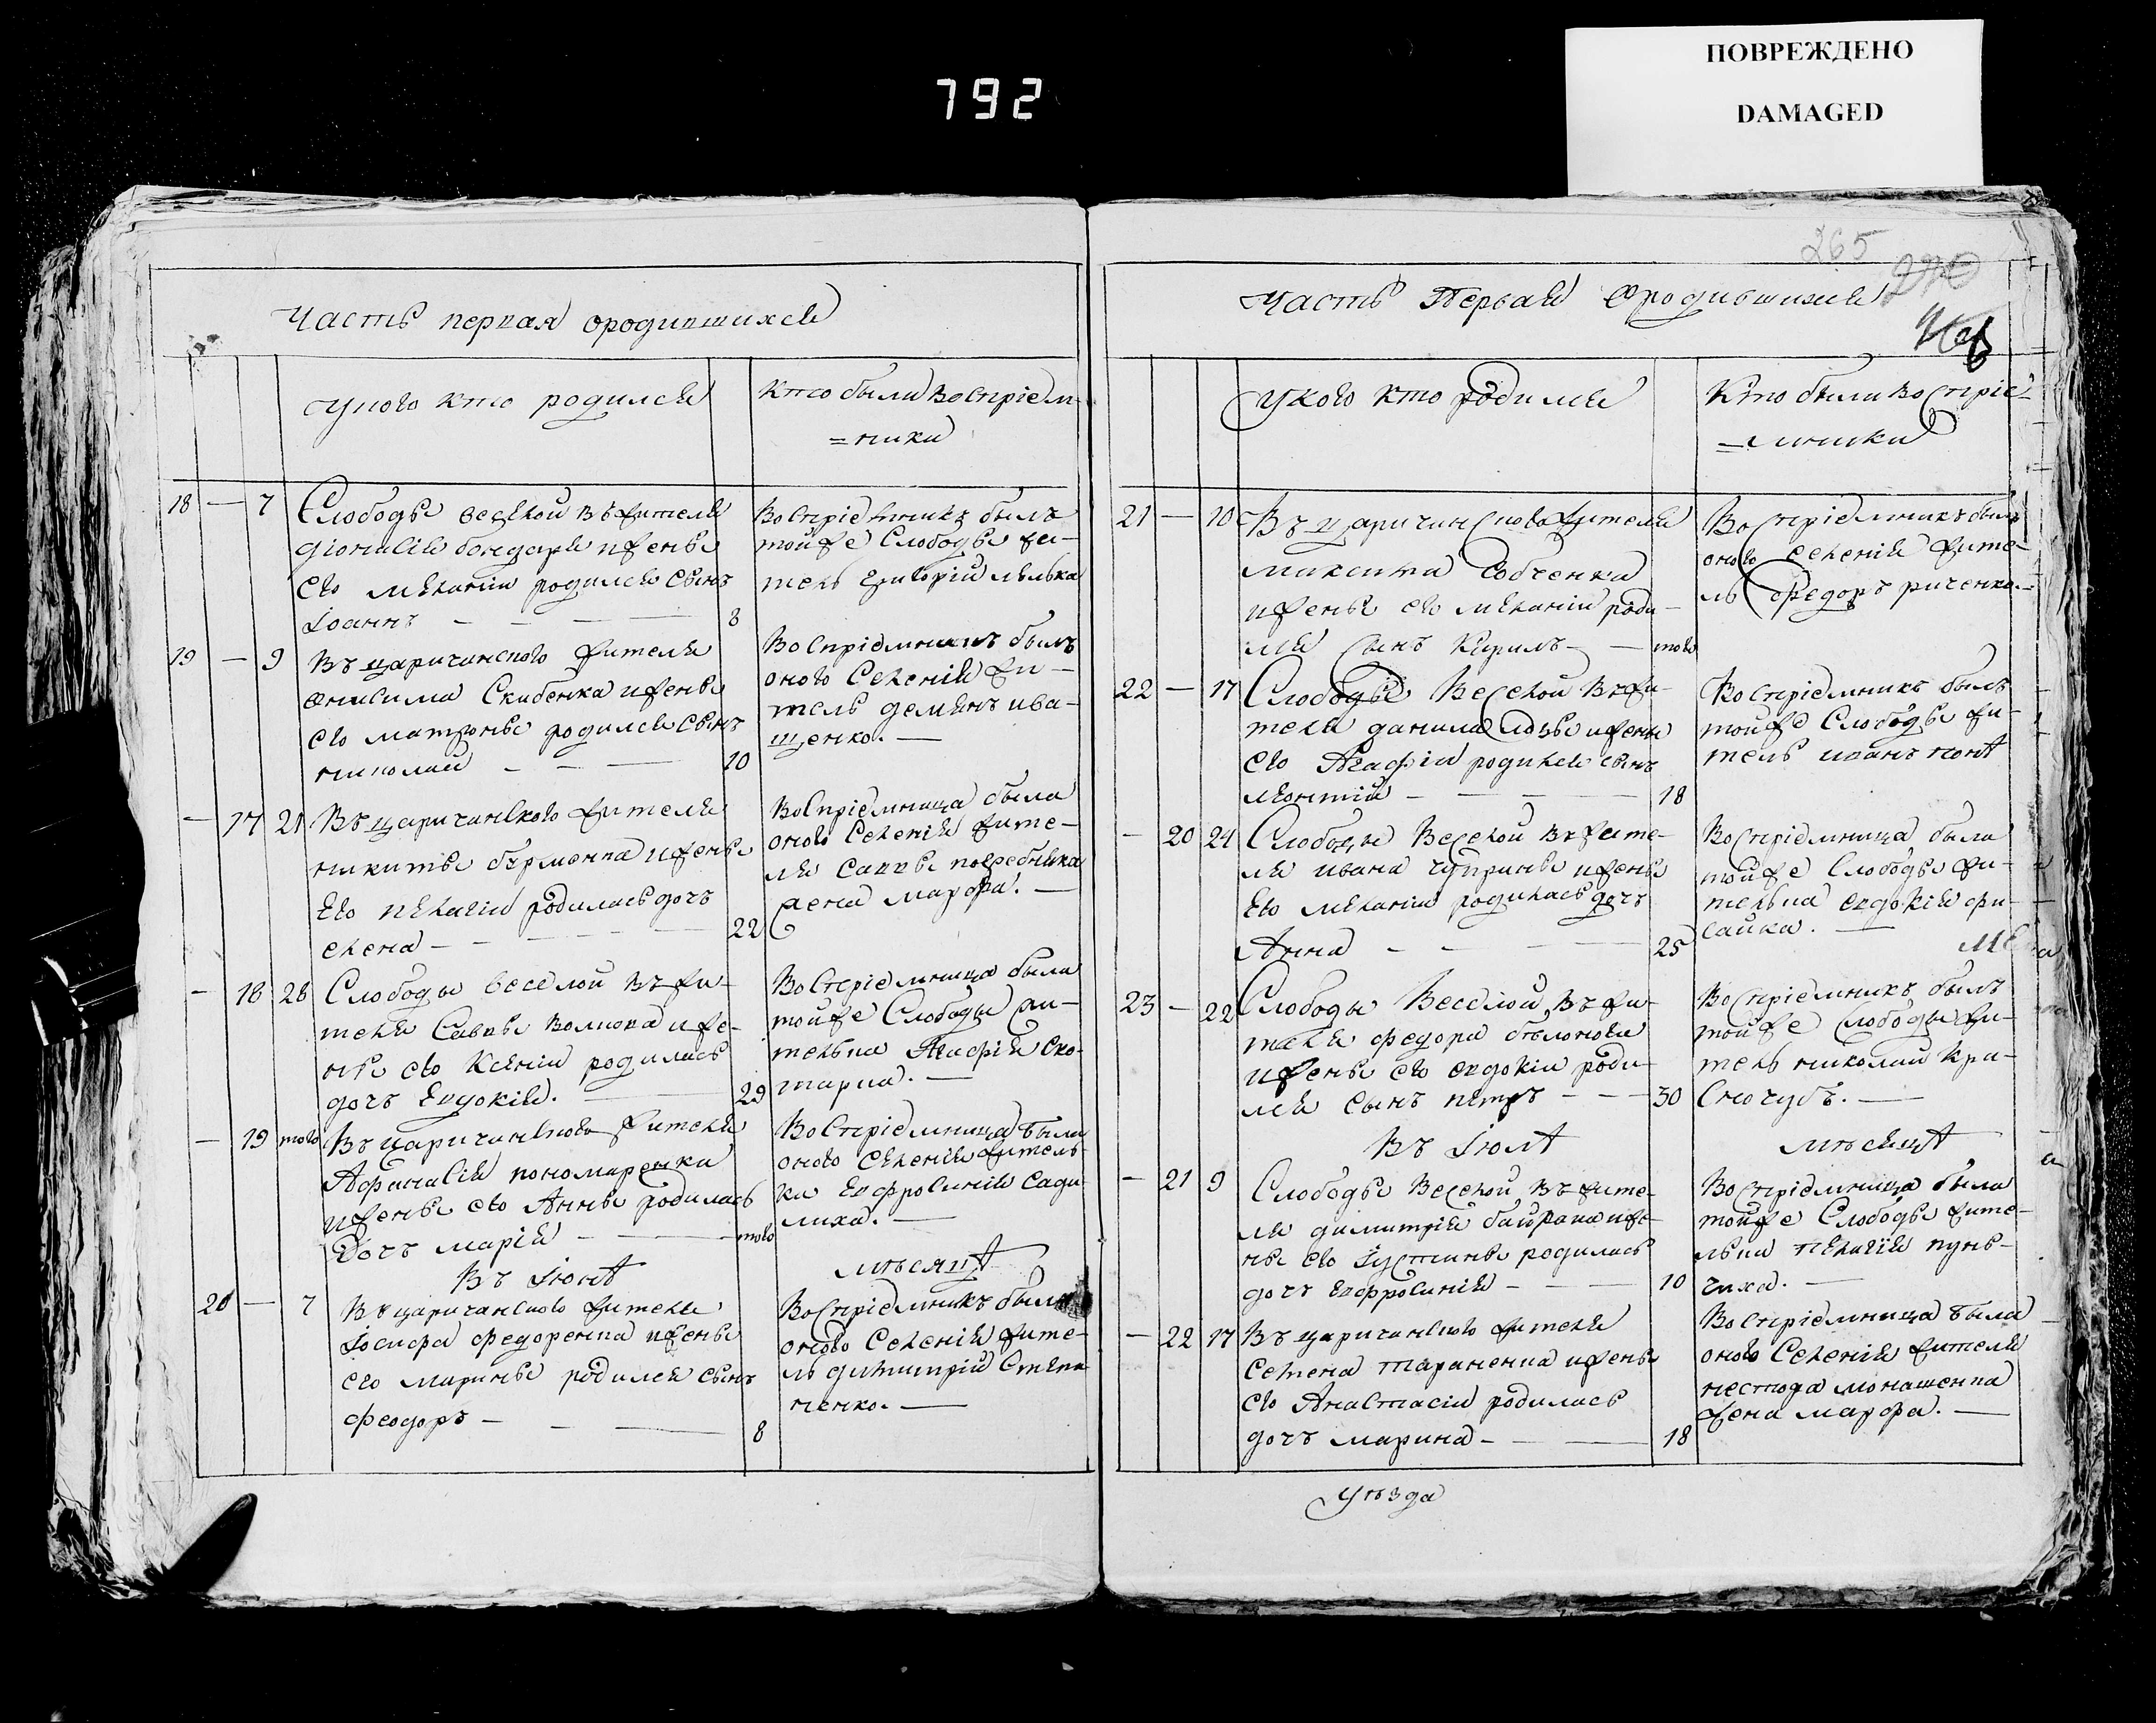 ПОВРЕЖДЕНО
DAMAGED
792
265
270
Часть первая ородившихся
укого кто родился
кто были воспріем-
=ники
18 — 7 Слободы веселой въ жителя
діонисія бондаря ижены
его меланіи родился сынъ
Іоаннъ — — — 8
Воспріемникъ былъ
тойже Слободы жи-
тель григорій
19 — 9 Въ царичанского жителя
онисима Скибенка ижены
его матроны родился сынъ
николай — — — 10
Воспріемникъ былъ
оного Селенія жи-
тель демянъ ива-
щенко. —
— 17 21 Въ царичанского жителя
никиты бурменка ижены
Его пелагіи родилась дочъ
елена — — — — 22
Воспріемница была
оного Селенія жите-
ля саввы погребняка
жена марфа. —
— 18 28 Слободы веселой въ жи-
теля Саввы волиока иже-
ны его Ксеніи родилась
дочъ Евдокія. — 29
Воспріемница была
тойже Слободы жи-
телька Агафія Ско-
тарка. —
— 19 того Въ царичанского жителя
Афанасія пономаренка
ижены его Анны родилась
Дочъ марія — — того
Воспріемница была
оного Селенія житель-
ка Евфросинія Сади-
лиха. —
Въ Іюнѣ
мѣсяцѣ
20 — 7 Въ царичанского жителя
Іосифа федоренка ижены
его марины родился сынъ
феодоръ — — — 8
Воспріемникъ былъ
оного Селенія жите-
ль димитрій Степа
ненко. —
Часть Первая Ородившихся
Укого кто родился
Кто были воспріе-
=мники
21 — 10 Въ царичанского жителя
максима Собченка
ижены его меланіи роди-
лся сынъ Кирилъ — — того
Воспріемникъ былъ
оного селенія жите-
ль Федоръ риченко. —
22 — 17 Слободы Веселой въ жи-
теля данила ижены
его Агафіи родился сынъ
леонтій — — — 18
Воспріемникъ былъ
тойже Слободы жи-
тель иванъ
— 20 24 Слободы Веселой въ жите-
ля ивана чуприны ижены
Его меланіи родилась дочъ
Анна — — — 25
Воспріемница была
тойже Слободы жи-
телька евдокія фи-
сайка. —
23 — 22 Слободы Веселой въ жи-
теля федора белокова
ижены его евдокіи роди-
лся сынъ петръ — — 30
Воспріемникъ былъ
тойже Слободы жи-
тель николай Кра-
сночубъ. —
Въ Іюлѣ
мѣсяцѣ
— 21 9 Слободы Веселой въ жите-
ля димитрія байрака иже-
ны его Іустины родилась
дочъ Евфросинія — — 10
Воспріемница была
тойже Слободы жите-
лька пелагія пунь-
чиха. —
— 22 17 Въ царичанского жителя
Семена тараненка ижены
его Анастасіи родилась
дочъ марина — — 18
Воспріемница была
оного Селенія жителя
нестора монашенка
жена марфа. —
Уѣзда